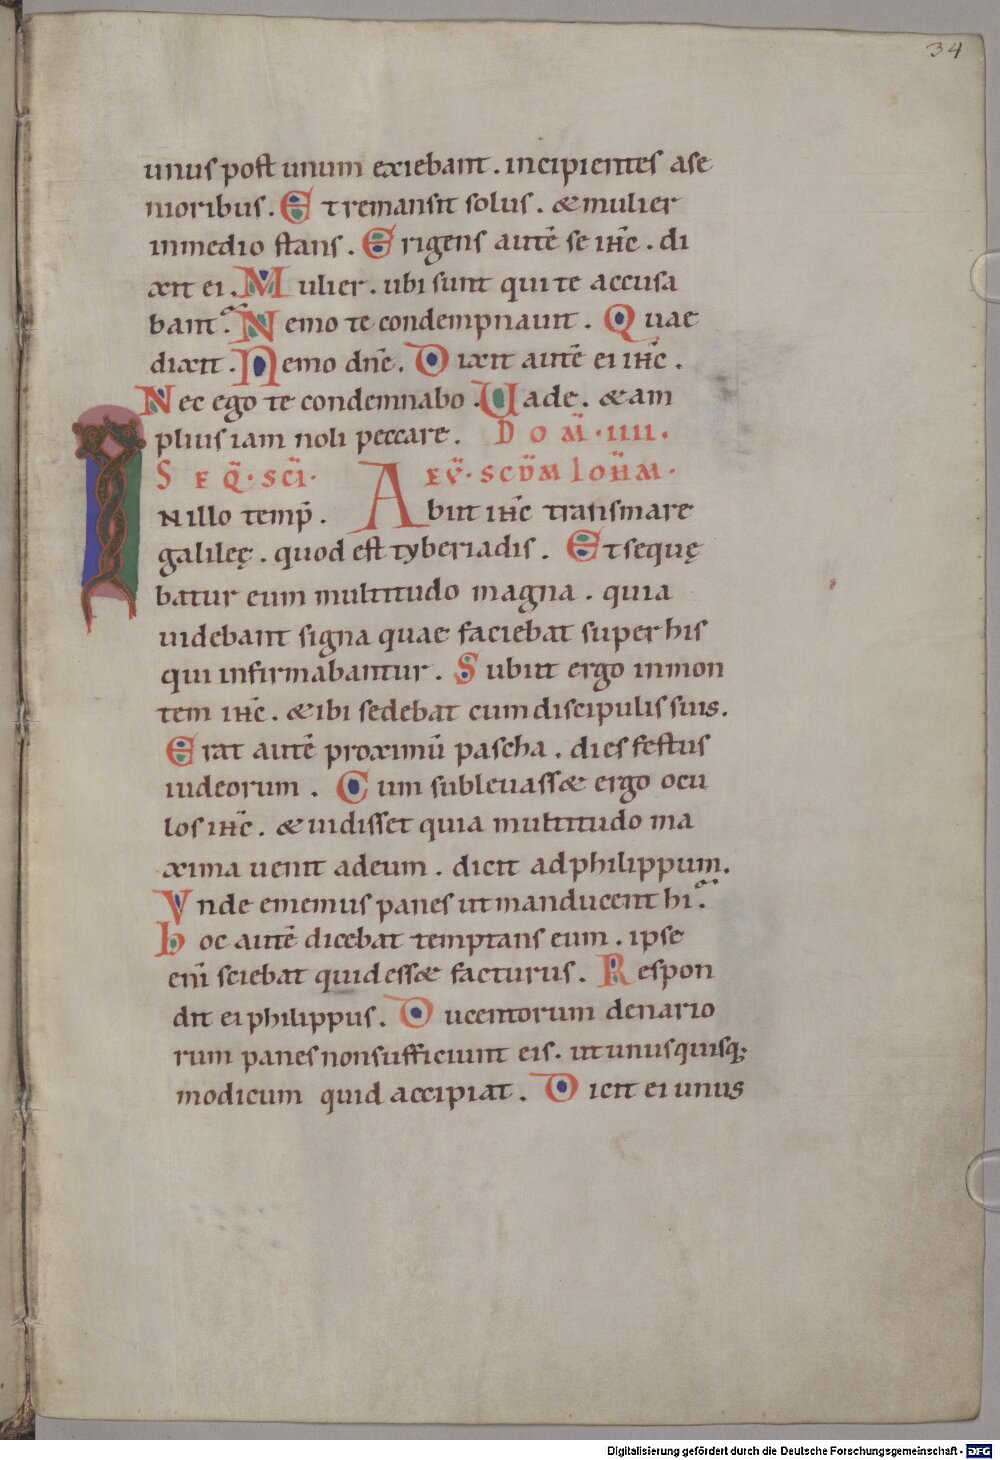 34
unus post unum exiebant. incipientes ase
nioribus. Et remansit solus. & mulier
inmedio stans. Erigens autē se ihc̄. di
xit ei. Mulier. ubi sunt qui te accusa
bant? Nemo te condempnauit. Quae
dixit. Nemo dnē. Dixit autē ei ihc̄.
Nec ego te condemnabo. Uade. & am
plius iam noli peccare. DOM̄. IIII.
SEQ̄. SCĪ. EV̄. SCD̄M IOH̄M.
IN illo temp̄. Abiit ihc̄ transmare
galileę. quod est tyberiadis. Et sequę
batur eum multitudo magna. quia
uidebant signa quae faciebat super his
qui infirmabantur. Subiit ergo inmon
tem ihc̄. & ibi sedebat cum discipulis suis.
Erat autē proximū pascha. dies festus
iudeorum. Cum subleuass& ergo ocu
los ihc̄. & uidisset quia multitudo ma
xima uenit adeum. dicit adphilippum.
Vnde ememus panes ut manducent hi?
hoc autē dicebat temptans eum. ipse
eni̅ sciebat quid ess& facturus. Respon
dit ei philippus. Ducentorum denario
rum panes non sufficiunt eis. ut unusquisq;
modicum quid accipiat. Dicit ei unus
Digitalisierung gefördert durch die Deutsche Forschungsgemeinschaft - DFG